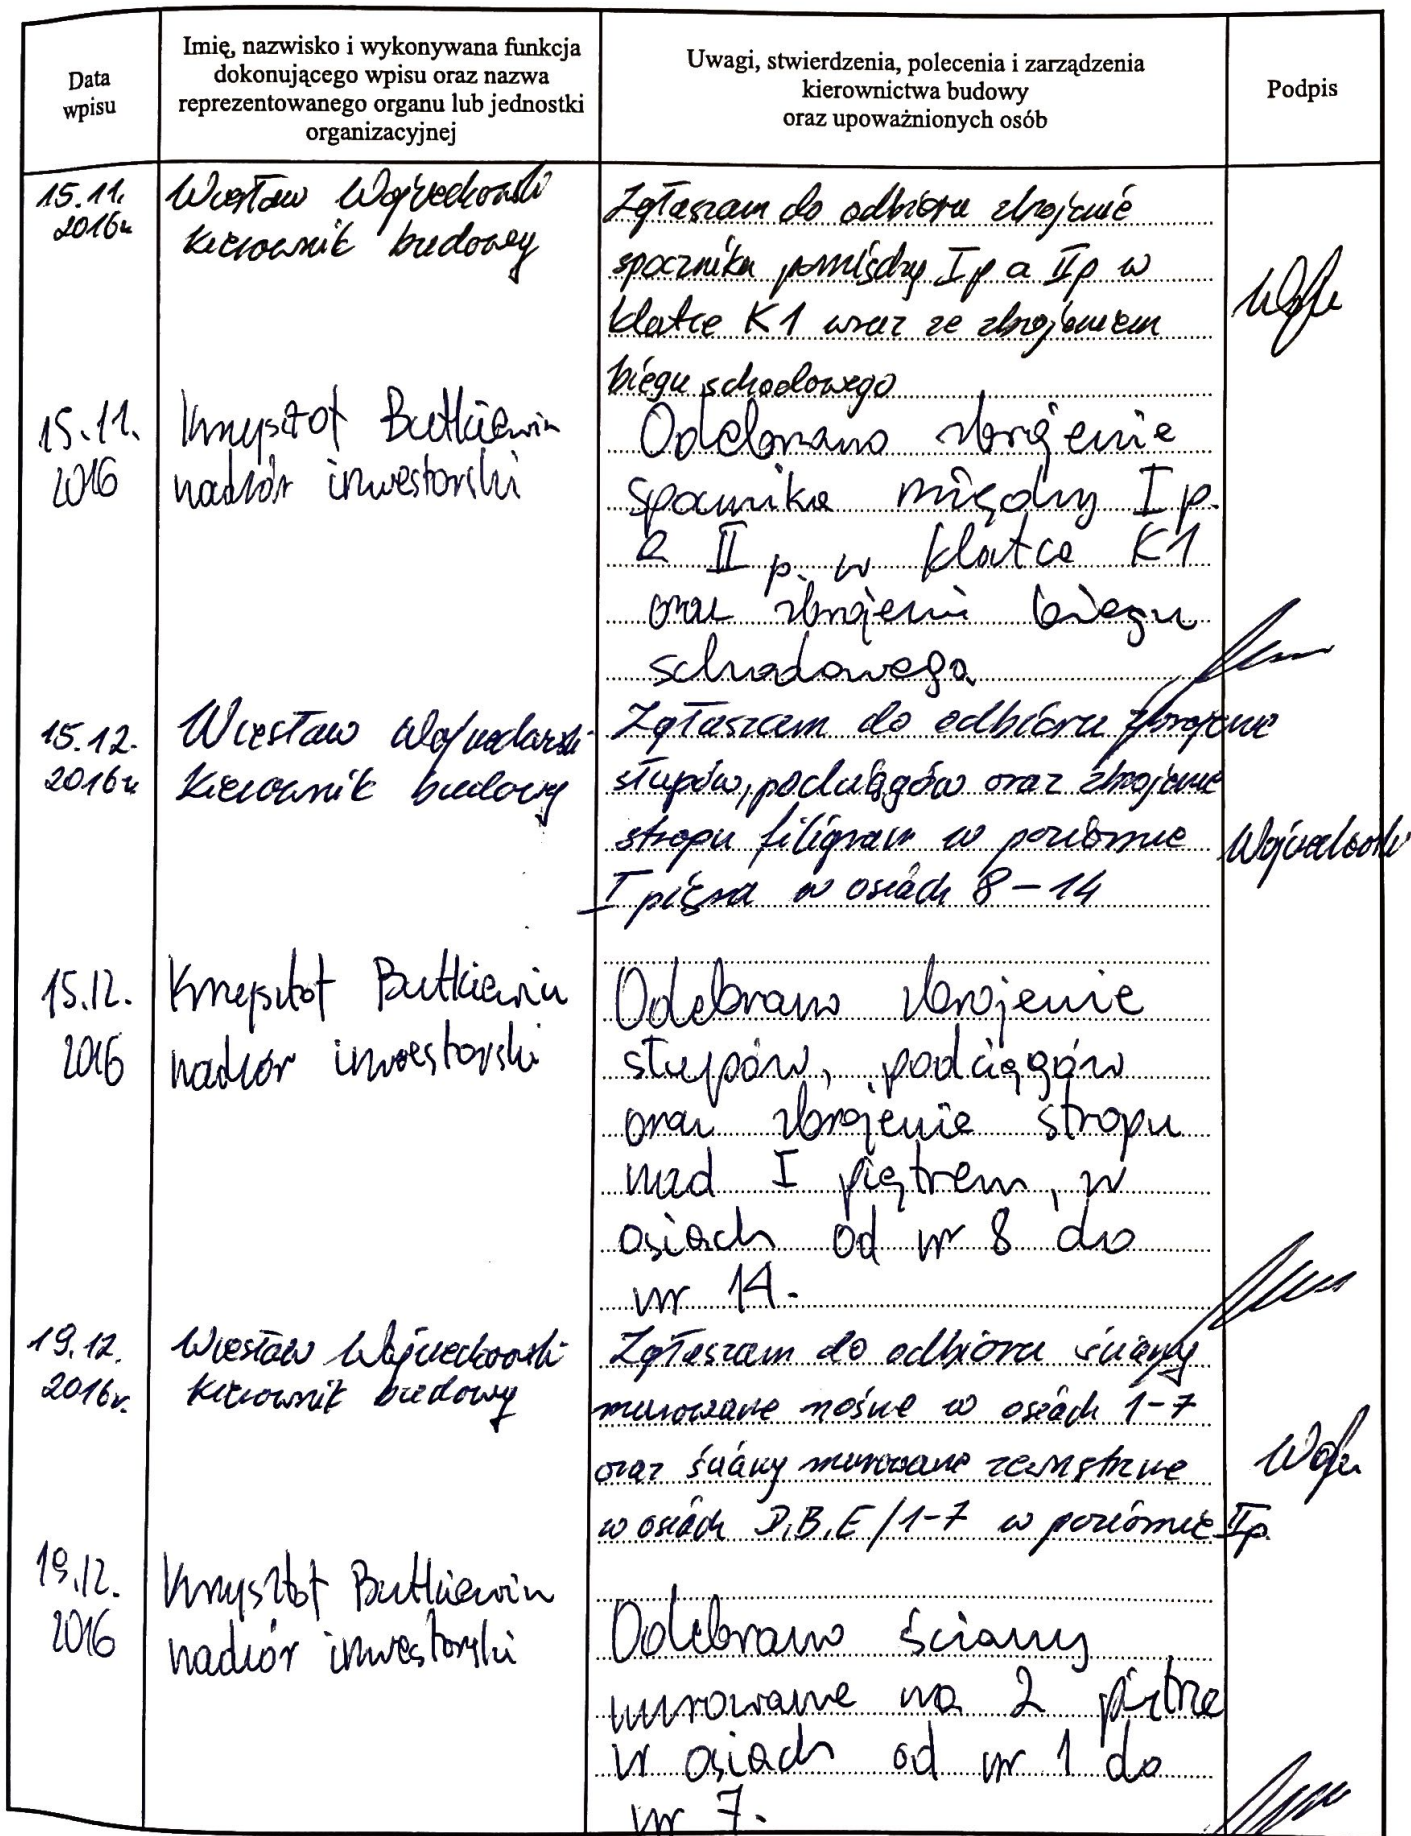 Data
wpisu
Imię, nazwisko i wykonywana funkcja
dokonującego wpisu oraz nazwa
reprezentowanego organu lub jednostki
organizacyjnej
Uwagi, stwierdzenia, polecenia i zarządzenia
kierownictwa budowy
oraz upoważnionych osób
Podpis
15.11.
2016r
Wiesław Wojciechowski
kierownik budowy
Zgłaszam do odbioru zbrojenie
spocznika pomiędzy I p a II p w
klatce K1 wraz ze zbrojeniem
biegu schodowego
15.11.
2016
Krzysztof Butkiewicz
nadzór inwestorski
Odebrano zbrojenie
spocznika między I p.
a II p. w klatce K1
oraz zbrojenie biegu
schodowego
15.12.
2016r
Wiesław
kierownik budowy
Zgłaszam do odbioru zbrojenie
słupów, podciągów oraz zbrojenie
stropu filigran w poziomie
I piętra w osiach 8-14
Wojciechowski
15.12.
2016
Krzysztof Butkiewicz
nadzór inwestorski
Odebrano zbrojenie
słupów, podciągów
oraz zbrojenie stropu
nad I piętrem, w
osiach od nr 8 do
nr 14.
19.12.
2016r.
Wiesław Wojciechowski
kierownik budowy
Zgłaszam do odbioru ściany
murowane nośne w osiach 1-7
oraz ściany murowane zewnętrzne
w osiach D,B,E/1-7 w poziomie II p.
19.12.
2016
Krzysztof Butkiewicz
nadzór inwestorski
Odebrano ściany
murowane na 2 piętrze
w osiach od nr 1 do
nr 7.